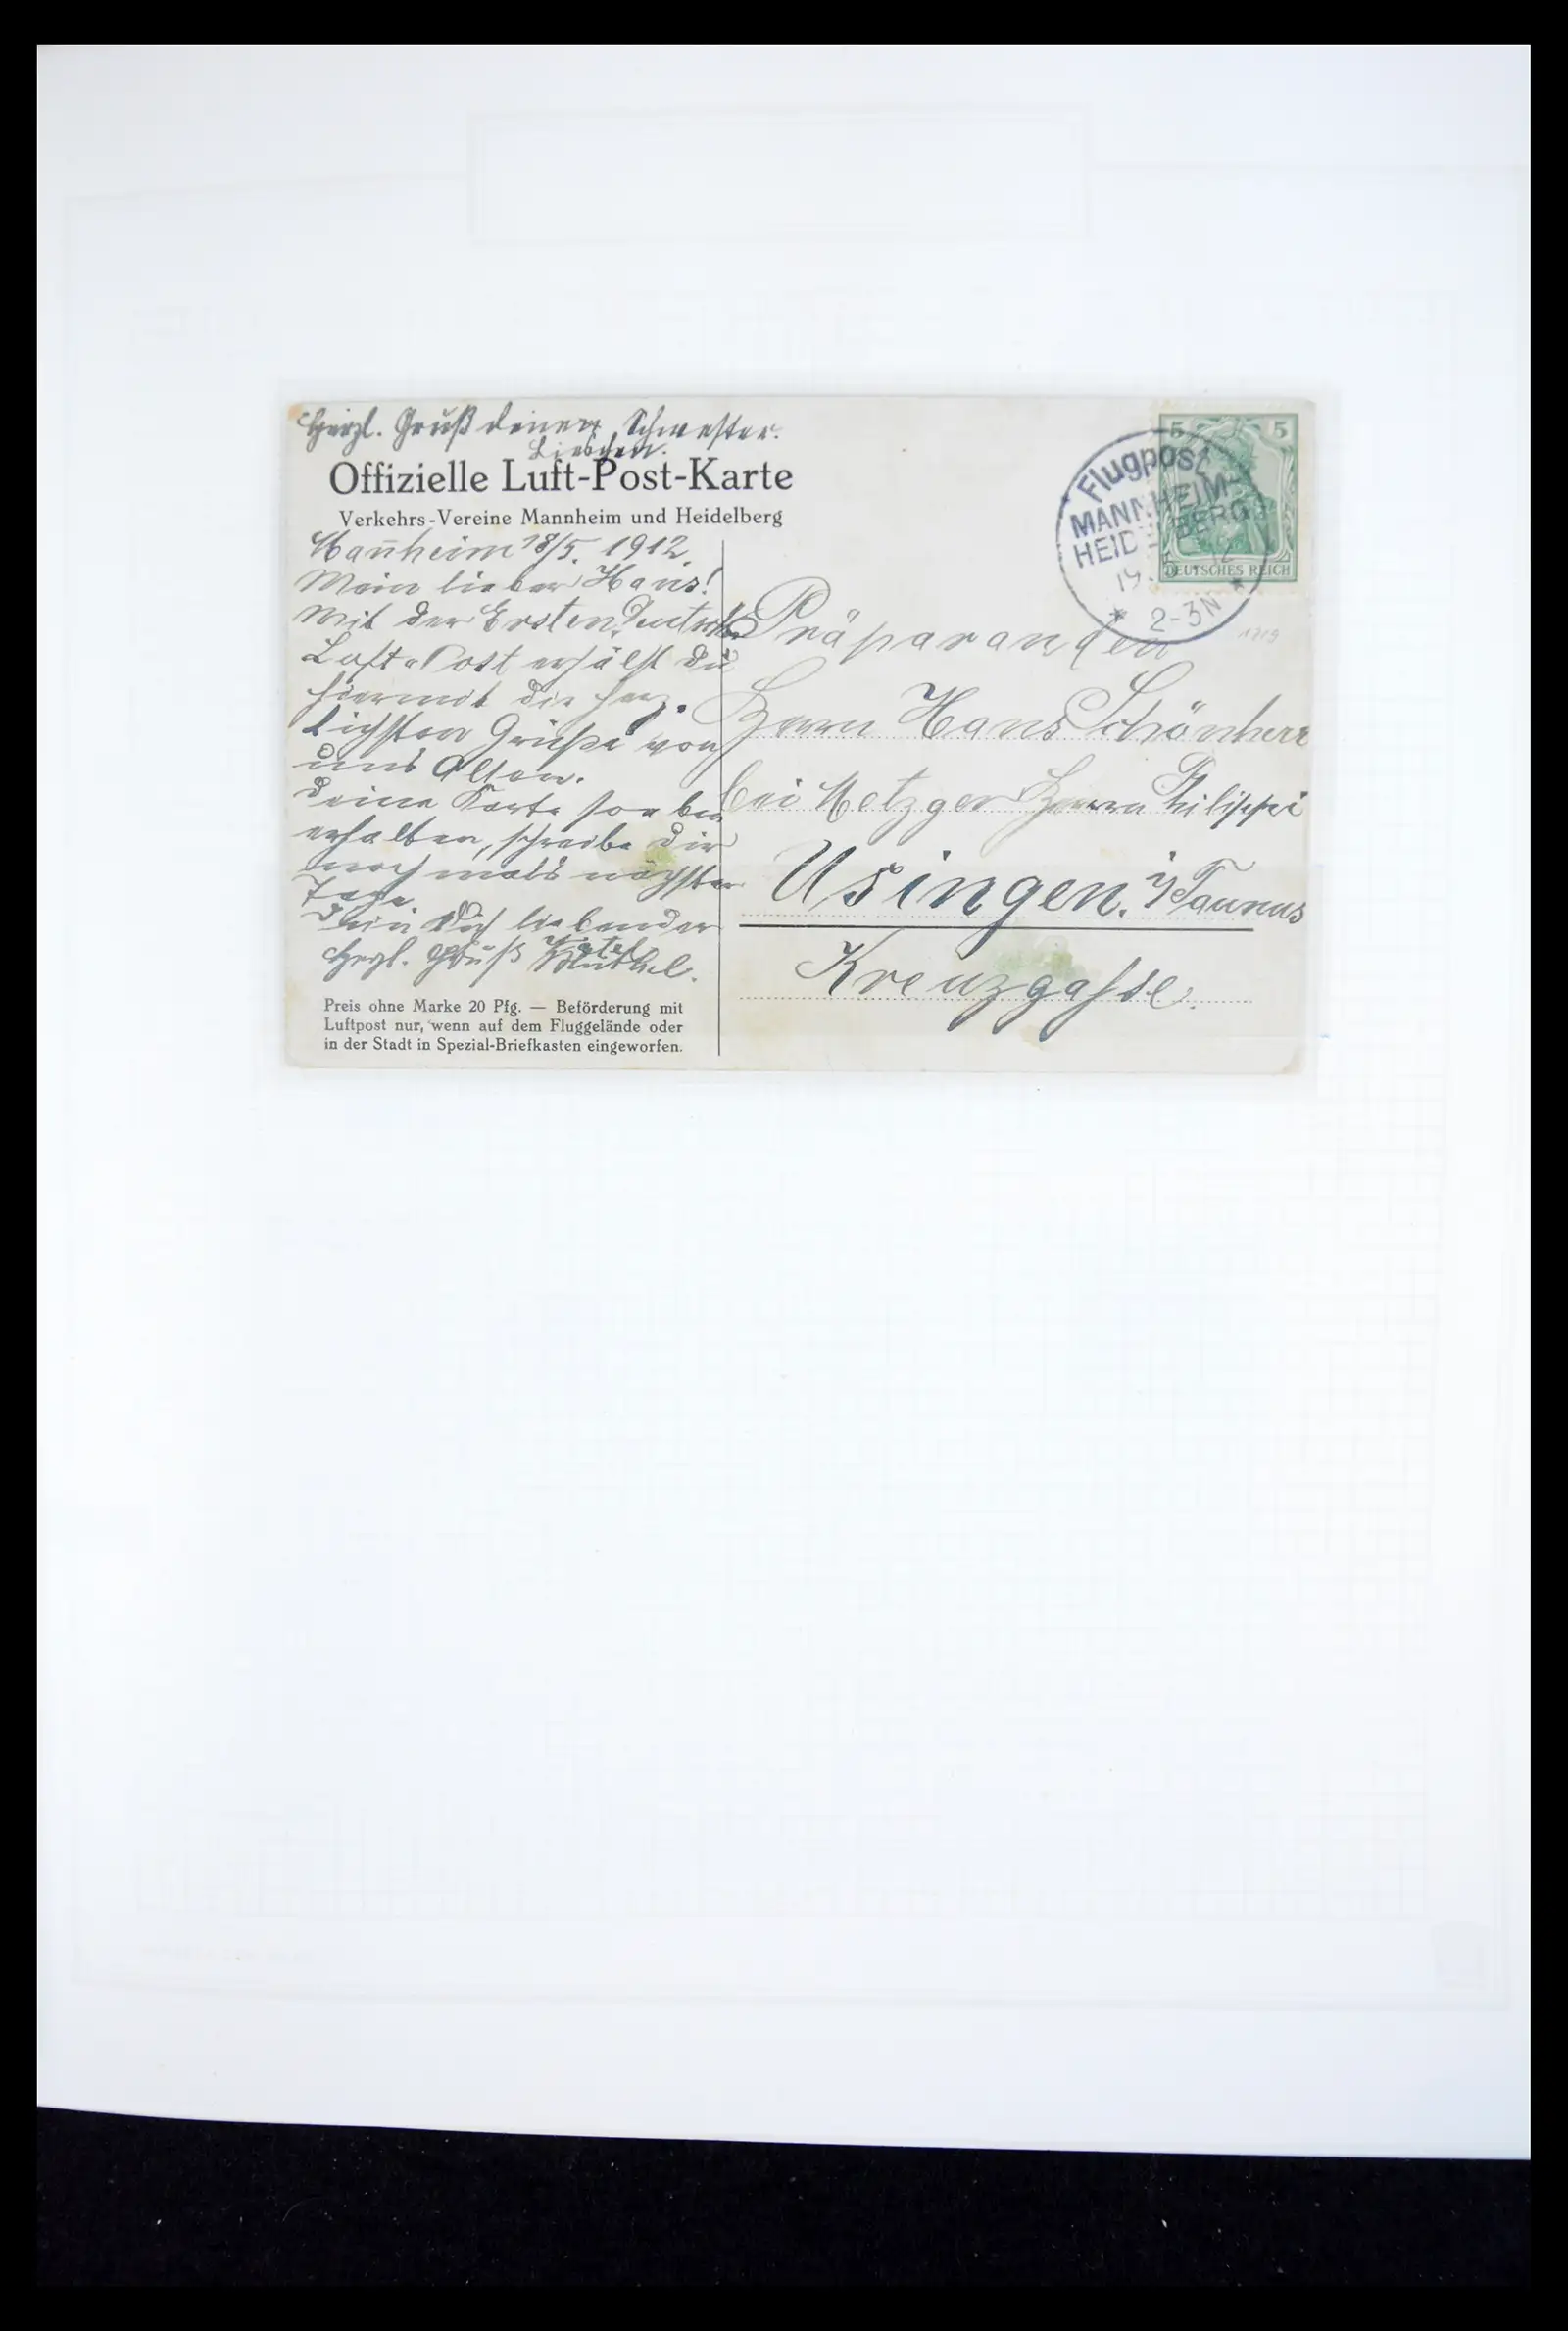 Herzl. Gruß deiner Schwester.
Lieschen.
Offizielle Luft-Post-Karte
Verkehrs-Vereine Mannheim und Heidelberg
Man̄heim 18/5. 1912.
Mein lieber Hans!
Mit der Ersten Deutschen
Luft-Post erhälst du
hiermit die herz-
lichsten Grüße von
uns Allen.
Deine Karte soeben
erhalten, schreibe dir
nochmals nächster
Tage.
Dein Dich liebender
Herzl. Gruß
Preis ohne Marke 20 Pfg. — Beförderung mit
Luftpost nur, wenn auf dem Fluggelände oder
in der Stadt in Spezial-Briefkasten eingeworfen.
5 5
DEUTSCHES REICH
Flugpost
MANNHEIM-
HEID BERG
19. 5 12
2-3N
Präparanden
Herrn Hans Schönherr
bei Metzger Herrn Philippi
Usingen. i/Taunus
Kreuzgasse.